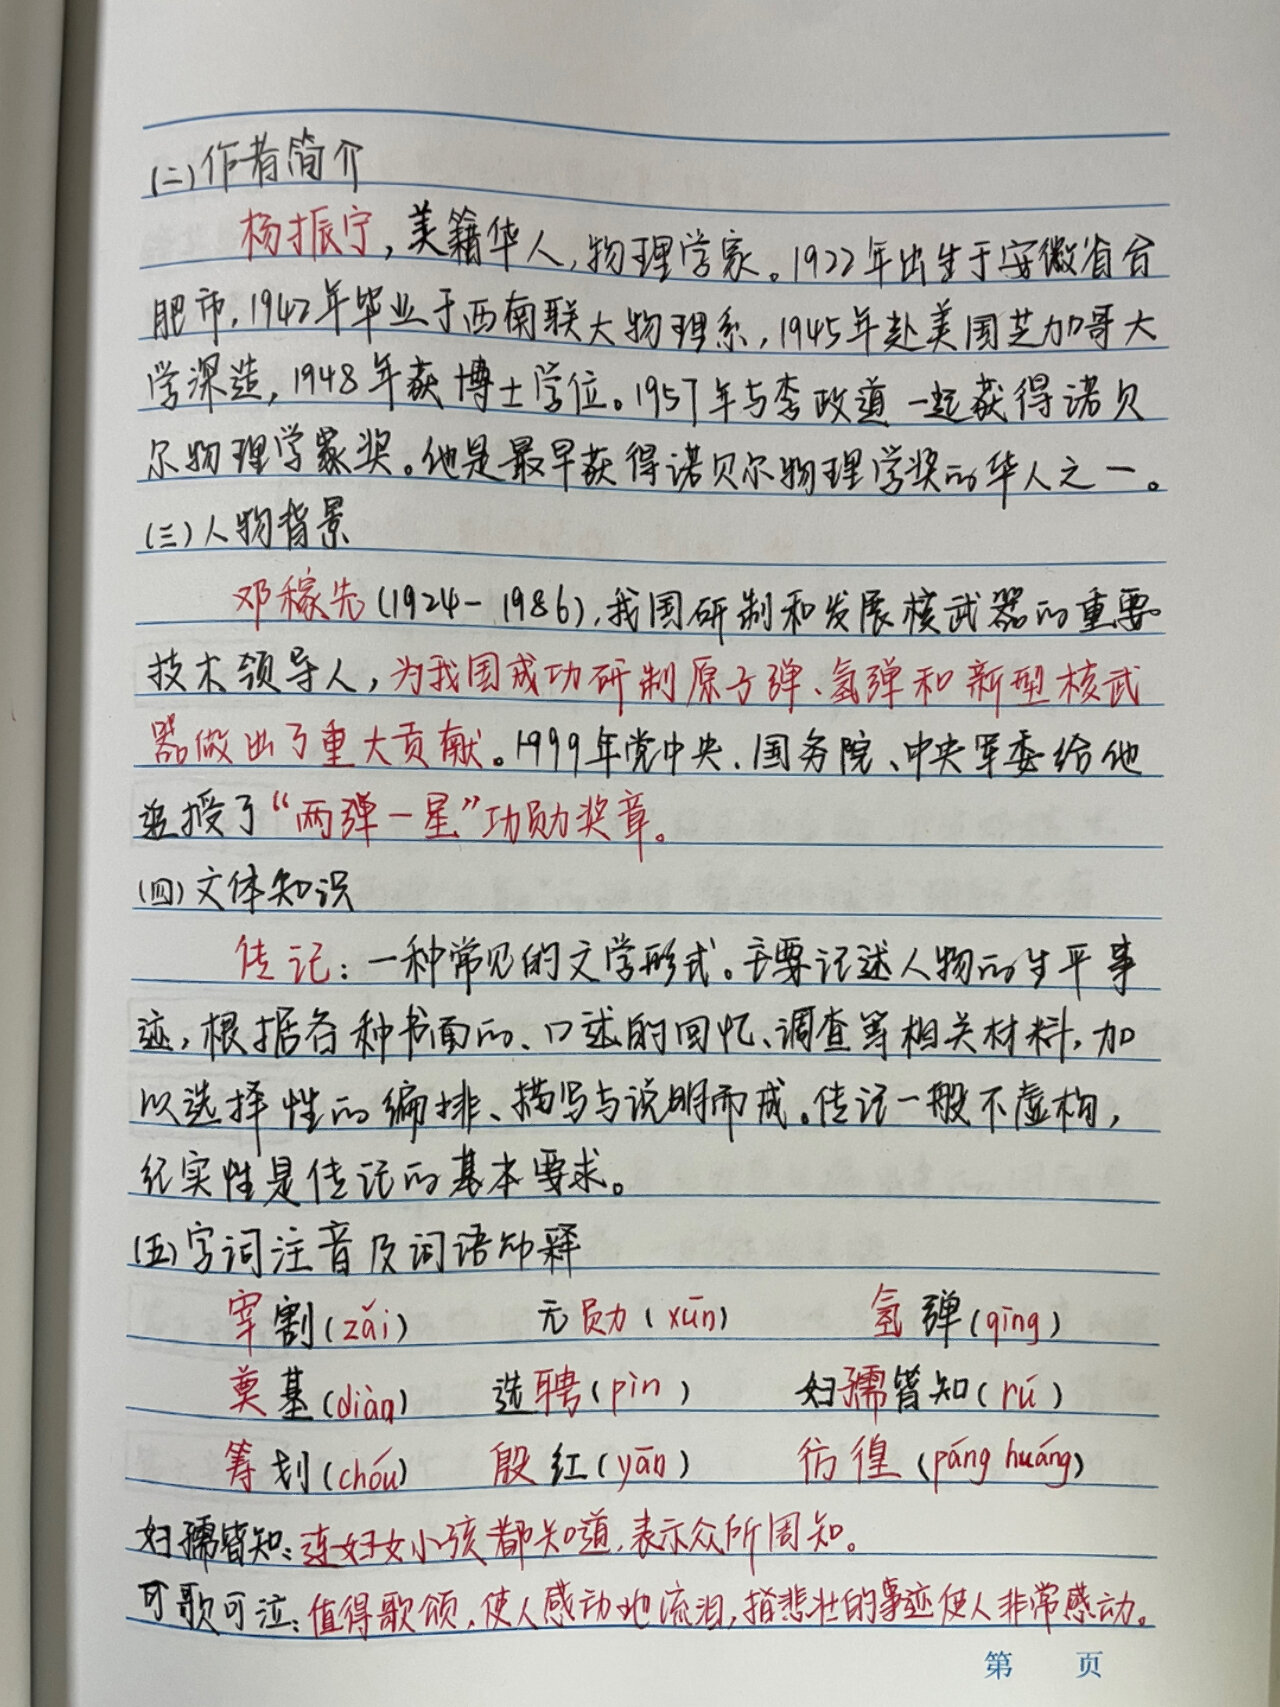 (二)作者简介
杨振宁,美籍华人,物理学家。1922年出生于安徽省合
肥市,1942年毕业于西南联大物理系,1945年赴美国芝加哥大
学深造,1948年获博士学位。1957年与李政道一起获得诺贝
尔物理学家奖。他是最早获得诺贝尔物理学奖的华人之一。
(三)人物背景
邓稼先(1924-1986),我国研制和发展核武器的重要
技术领导人,为我国成功研制原子弹、氢弹和新型核武
器做出了重大贡献。1999年党中央、国务院、中央军委给他
追授了“两弹一星”功勋奖章。
(四)文体知识
传记:一种常见的文学形式。主要记述人物的生平事
迹,根据各种书面的、口述的回忆、调查等相关材料,加
以选择性的编排、描写与说明而成。传记一般不虚构,
纪实性是传记的基本要求。
(五)字词注音及词语解释
宰割(zǎi) 元勋(xūn) 氢弹(qīng)
奠基(diàn) 选聘(pìn) 妇孺皆知(rú)
筹划(chóu) 殷红(yān) 彷徨(páng huáng)
妇孺皆知:连妇女小孩都知道,表示众所周知。
可歌可泣:值得歌颂,使人感动地流泪,指悲壮的事迹使人非常感动。
第 页